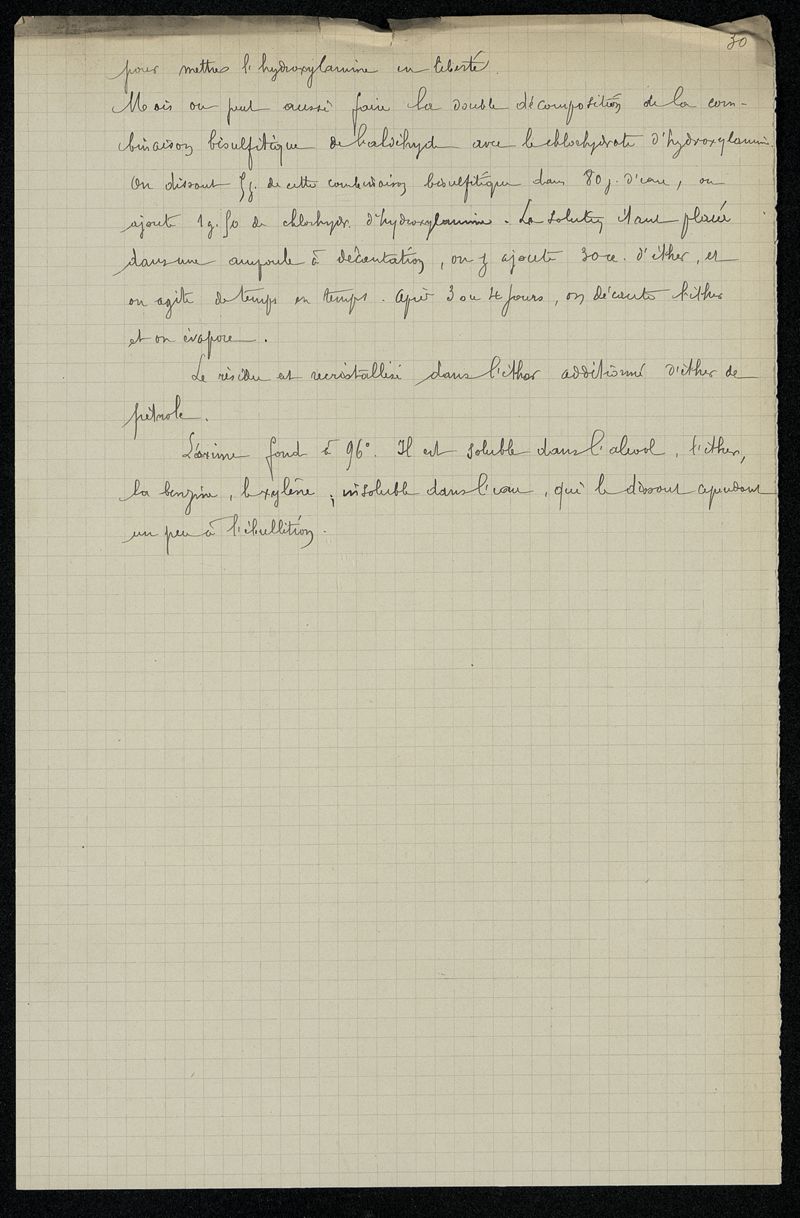 30
pour mettre l'hydroxylamine en liberté.
Mais on peut aussi faire la double décomposition de la com-
binaison bisulfitique de l'aldéhyde avec le chlorhydrate d'hydroxylamine.
On dissout 5g. de cette combinaison bisulfitique dans 80g. d'eau, on
ajoute 1g.50 de chlorhydr. d'hydroxylamine. La solution étant placée
dans une ampoule à décantation, on y ajoute 30cc. d'éther, et
on agite de temps en temps. Après 3 ou 4 jours, on décante l'éther
et on évapore.
Le résidu est recristallisé dans l'éther additionné d'éther de
pétrole.
L'oxime fond à 96°. Il est soluble dans l'alcool, l'éther,
la benzine, le xylène; insoluble dans l'eau, qui le dissout cependant
un peu à l'ébullition.